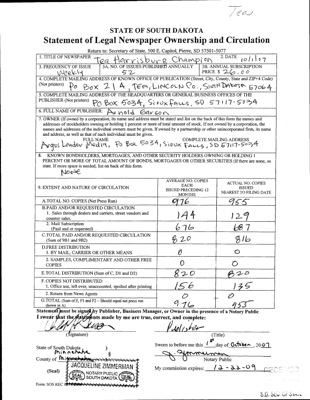 Tea
STATE OF SOUTH DAKOTA
Statement of Legal Newspaper Ownership and Circulation
Return to: Secretary of State, 500 E. Capitol, Pierre, SD 57501-5077
1. TITLE OF NEWSPAPER Tea Harrisburg Champion 2. DATE 10/1/07
3. FREQUENCY OF ISSUE Weekly 3A. NO. OF ISSUES PUBLISHED ANNUALLY 52 3B. ANNUAL SUBSCRIPTION PRICE $ 26.00
4. COMPLETE MAILING ADDRESS OF KNOWN OFFICE OF PUBLICATION (Street, City, County, State and ZIP+4 Code)
(Not printers) PO Box 214, Tea, Lincoln Co., South Dakota 57064
5. COMPLETE MAILING ADDRESS OF THE HEADQUARTERS OR GENERAL BUSINESS OFFICES OF THE
PUBLISHER (Not printers) PO Box 5034, Sioux Falls, SD 57117-5034
6. FULL NAME OF PUBLISHER: Arnold Garson
7. OWNER (If owned by a corporation, its name and address must be stated and
FULL NAME COMPLETE MAILING ADDRESS
Argus Leader Media, PO Box 5034, Sioux Falls, SD 57117-5034
8. KNOWN BONDHOLDERS, MORTGAGES, AND OTHER SECURITY HOLDERS OWNING OR HOLDING 1
PERCENT OR MORE OF TOTAL AMOUNT OF BONDS, MORTGAGES OR OTHER SECURITIES (If there are none, so
state. If more space is needed, list on back of this form.
None
9. EXTENT AND NATURE OF CIRCULATION
AVERAGE NO. COPIES EACH ISSUED PRECEDING 12 MONTHS
ACTUAL NO. COPIES ISSUED NEAREST TO FILING DATE
A. TOTAL NO. COPIES (Net Press Run) 976 955
B. PAID AND/OR REQUESTED CIRCULATION
1. Sales through dealers and carriers, street vendors and counter sales. 144 129
2. Mail Subscription (Paid and or requested) 676 687
C. TOTAL PAID AND/OR REQUESTED CIRCULATION (Sum of 9B1 and 9B2) 820 816
D. FREE DISTRIBUTION
1. BY MAIL, CARRIER OR OTHER MEANS 0 0
2. SAMPLES, COMPLIMENTARY AND OTHER FREE COPIES 0 0
E. TOTAL DISTRIBUTION (Sum of C, D1 and D2) 820 820
F. COPIES NOT DISTRIBUTED
1. Office use, left over, unaccounted, spoiled after printing 156 135
2. Return from News Agents 0 0
G. TOTAL (Sum of E, F1 and F2 - Should equal net press run shown in A) 976 955
Statement must be signed by Publisher, Business Manager, or Owner in the presence of a Notary Public
I swear that the statements made by me are true, correct, and complete:
Publisher
(Signature) (Title)
State of South Dakota
County of Minnehaha
Sworn to before me this 1st day of October, 2007
J. Zimmerman
Notary Public
(Seal)
JACQUELINE ZIMMERMAN
NOTARY PUBLIC
SOUTH DAKOTA
SEAL
My commission expires: 12-22-09